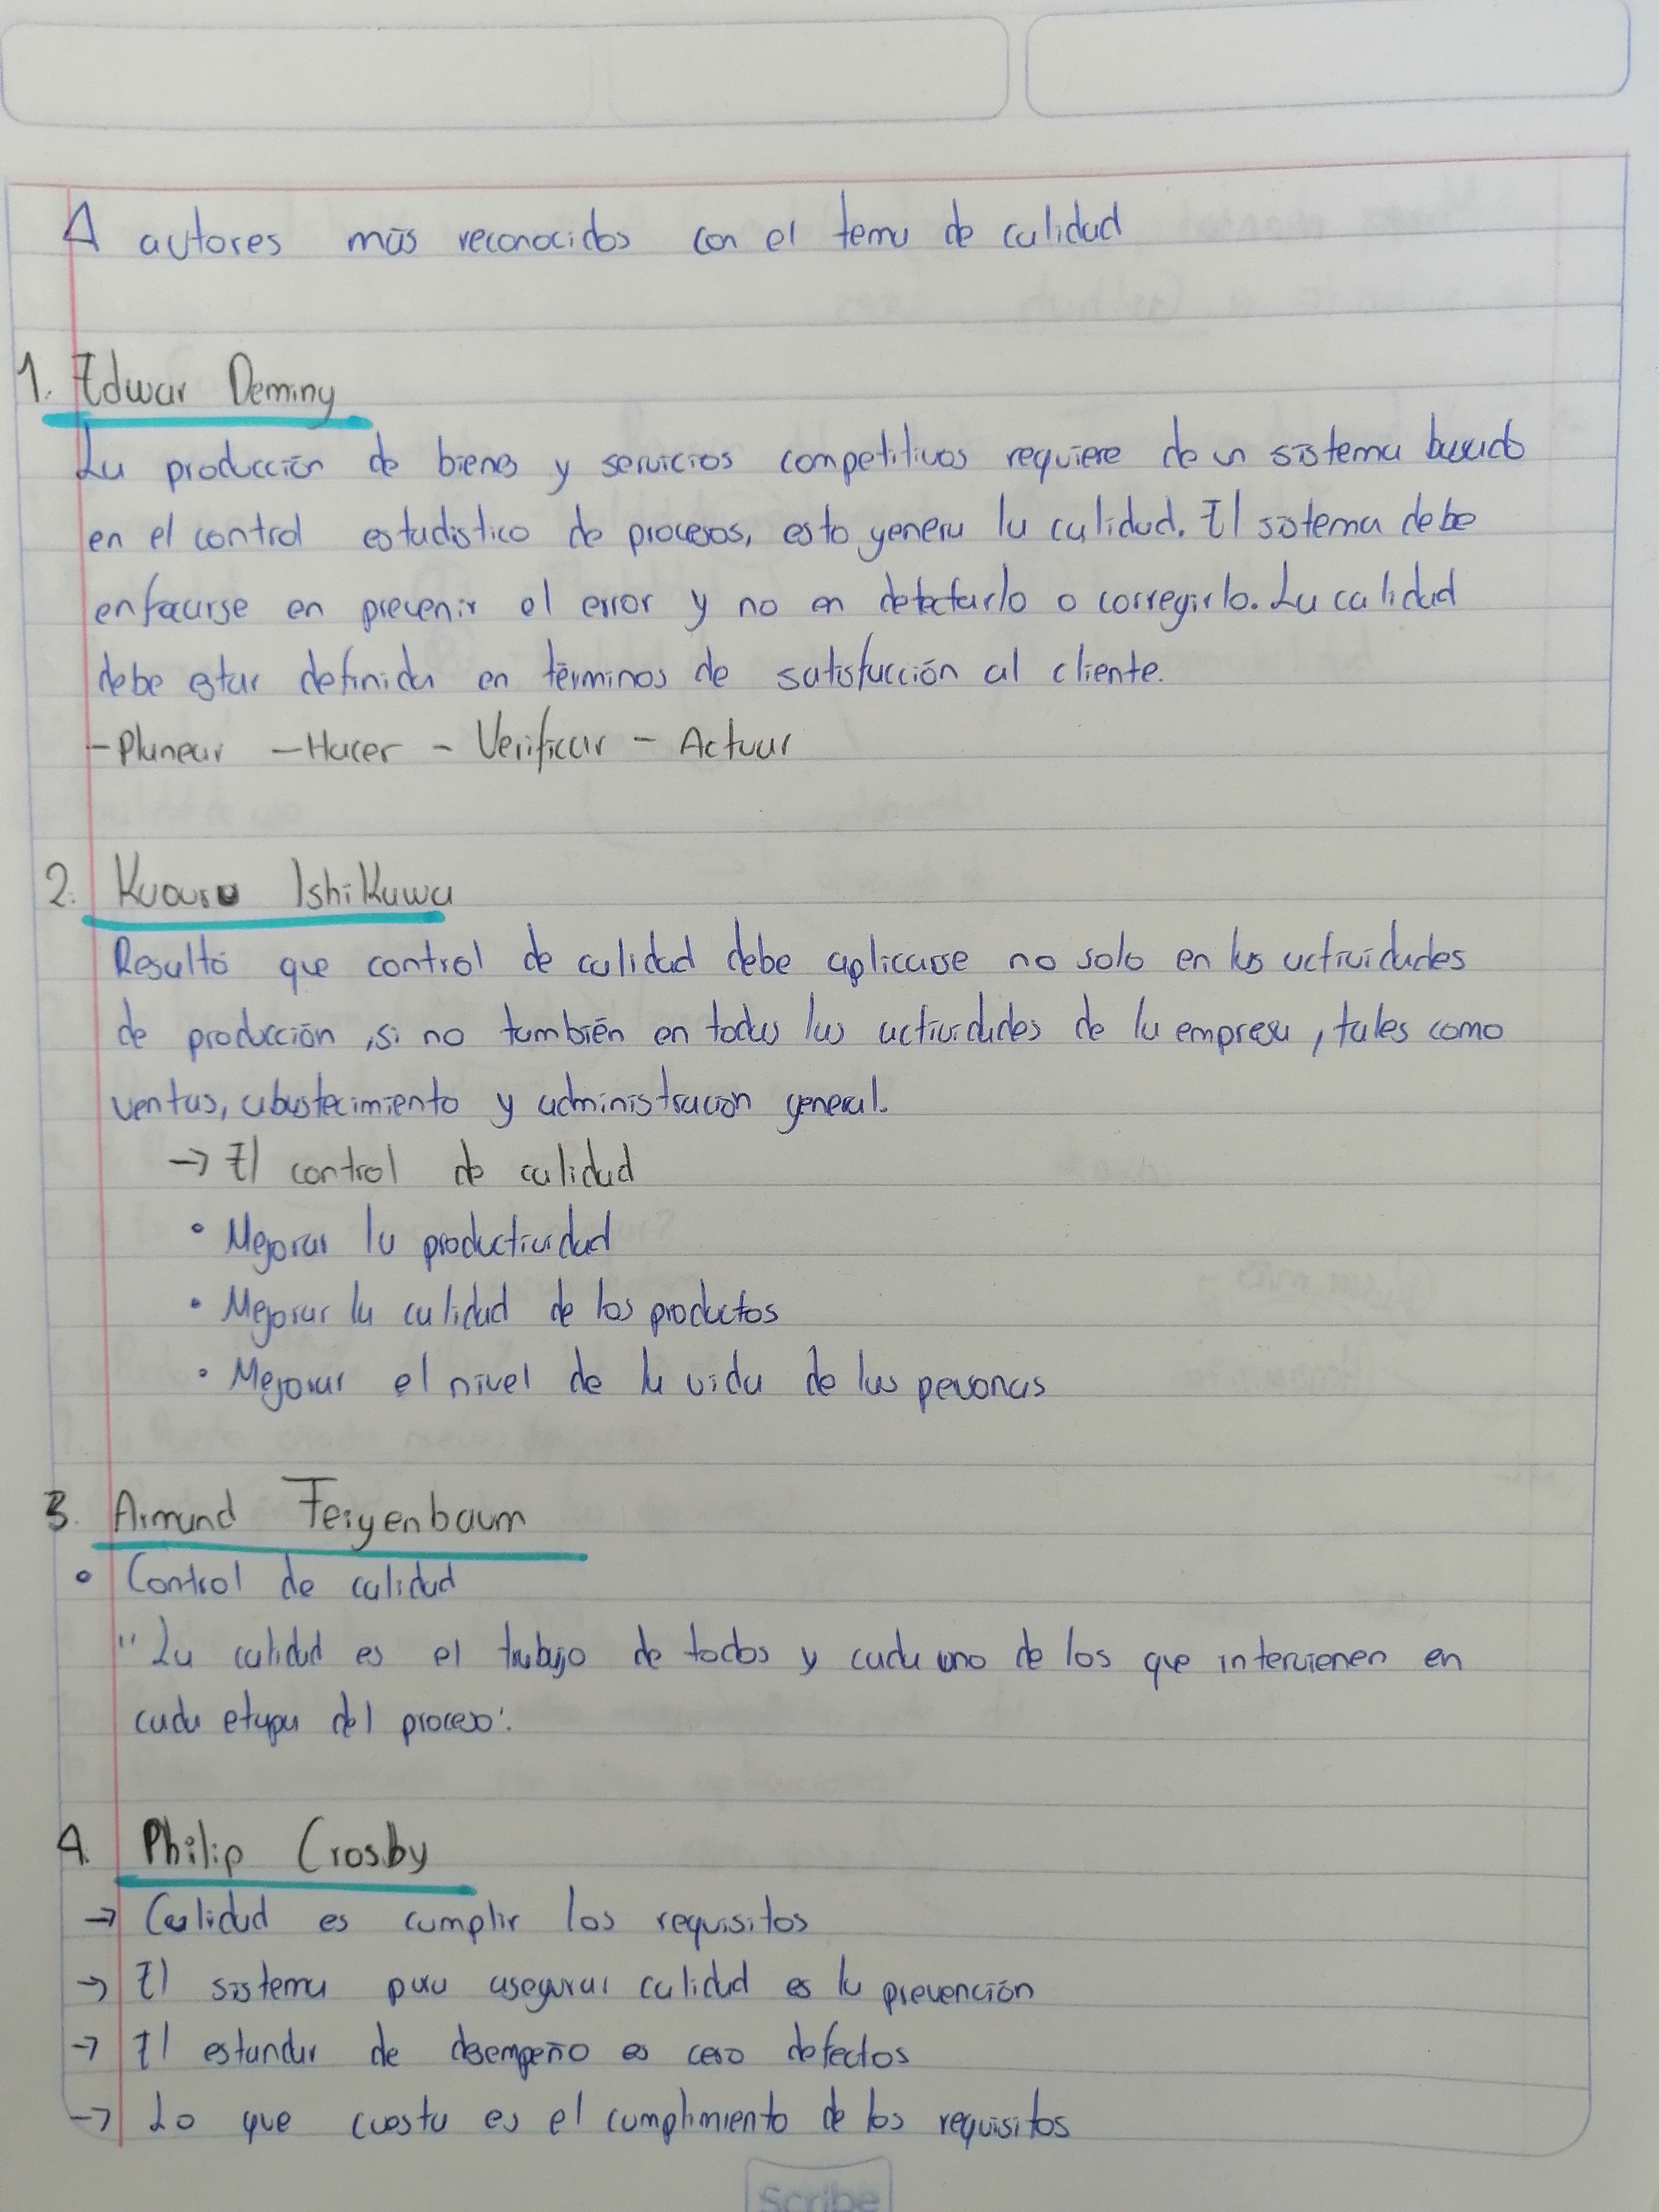 4 autores más reconocidos con el tema de calidad
1. Edwar Deming
La producción de bienes y servicios competitivos requiere de un sistema basado
en el control estadístico de procesos, esto genera la calidad. El sistema debe
enfocarse en prevenir el error y no en detectarlo o corregirlo. La calidad
debe estar definida en términos de satisfacción al cliente.
- Planear - Hacer - Verificar - Actuar
2. Kuoaru Ishikawa
Resultó que control de calidad debe aplicarse no solo en las actividades
de producción, si no también en todas las actividades de la empresa, tales como
ventas, abastecimiento y administración general.
→ El control de calidad
• Mejorar la productividad
• Mejorar la calidad de los productos
• Mejorar el nivel de la vida de las personas
3. Armand Feigenbaum
• Control de calidad
"La calidad es el trabajo de todos y cada uno de los que intervienen en
cada etapa del proceso".
4. Philip Crosby
→ Calidad es cumplir los requisitos
→ El sistema para asegurar calidad es la prevención
→ El estandar de desempeño es cero defectos
→ Lo que cuesta es el cumplimiento de los requisitos
Scribe